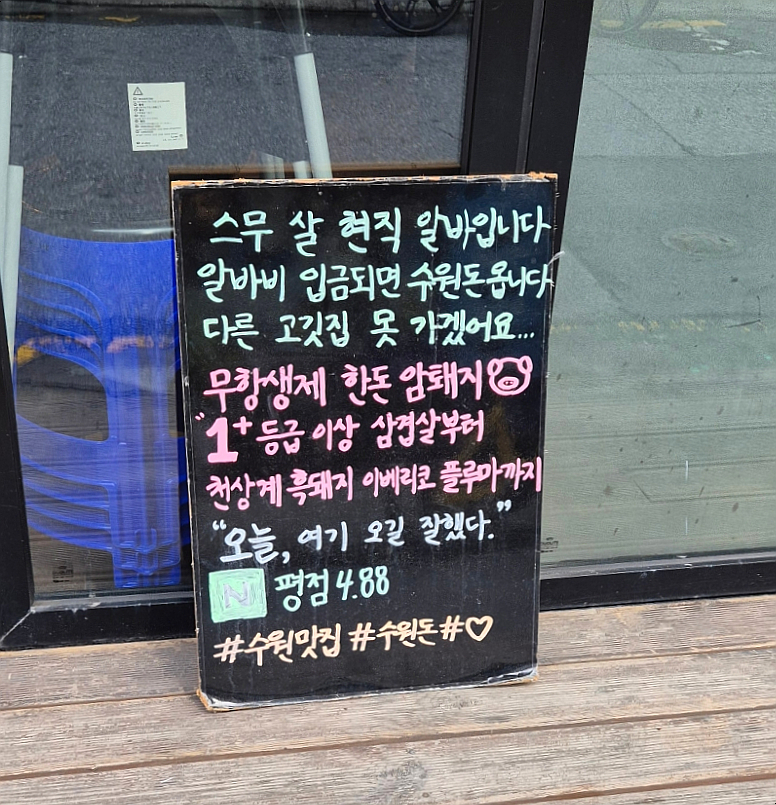 스무 살 현직 알바입니다
알바비 입금되면 수원돈옵니다
다른 고깃집 못 가겠어요...
무항생제 한돈 암퇘지
"1+등급 이상 삼겹살부터
천상계 흑돼지 이베리코 플루마까지
"오늘, 여기 오길 잘했다."
N 평점 4.88
#수원맛집 #수원돈#♡